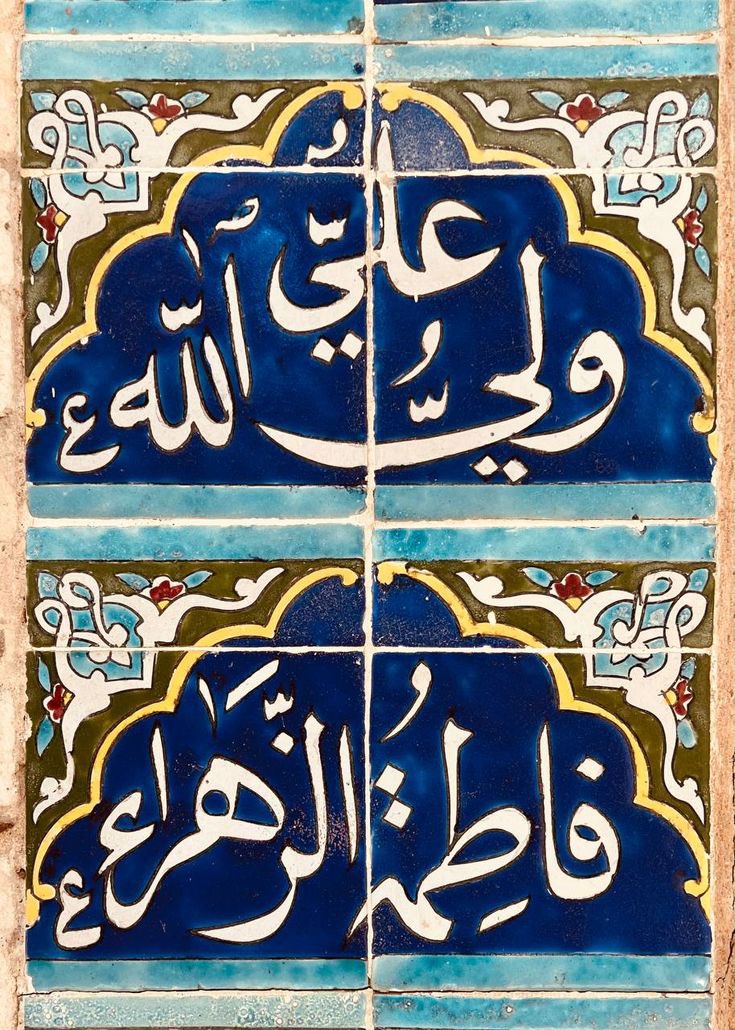 عليٌّ وليُّ اللّٰه ع
فاطِمةُ الزّهراء ع